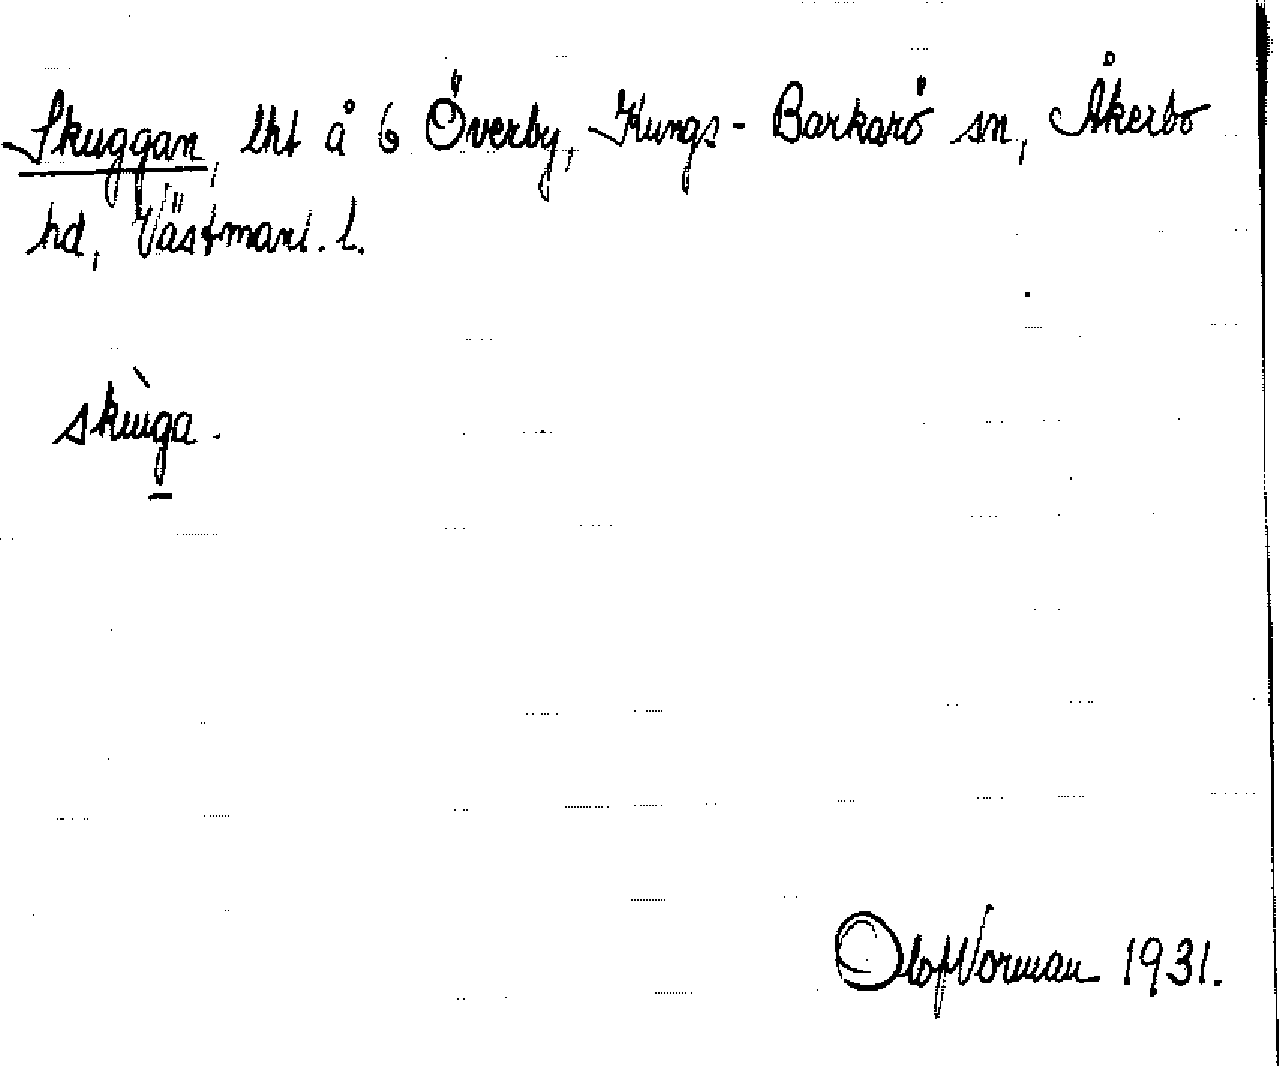 Skuggan, lht å 6 Överby, Kungs-Barkarö sn, Åkerbo
hd, Västmanl. l.
skùga.
Olof Norman 1931.